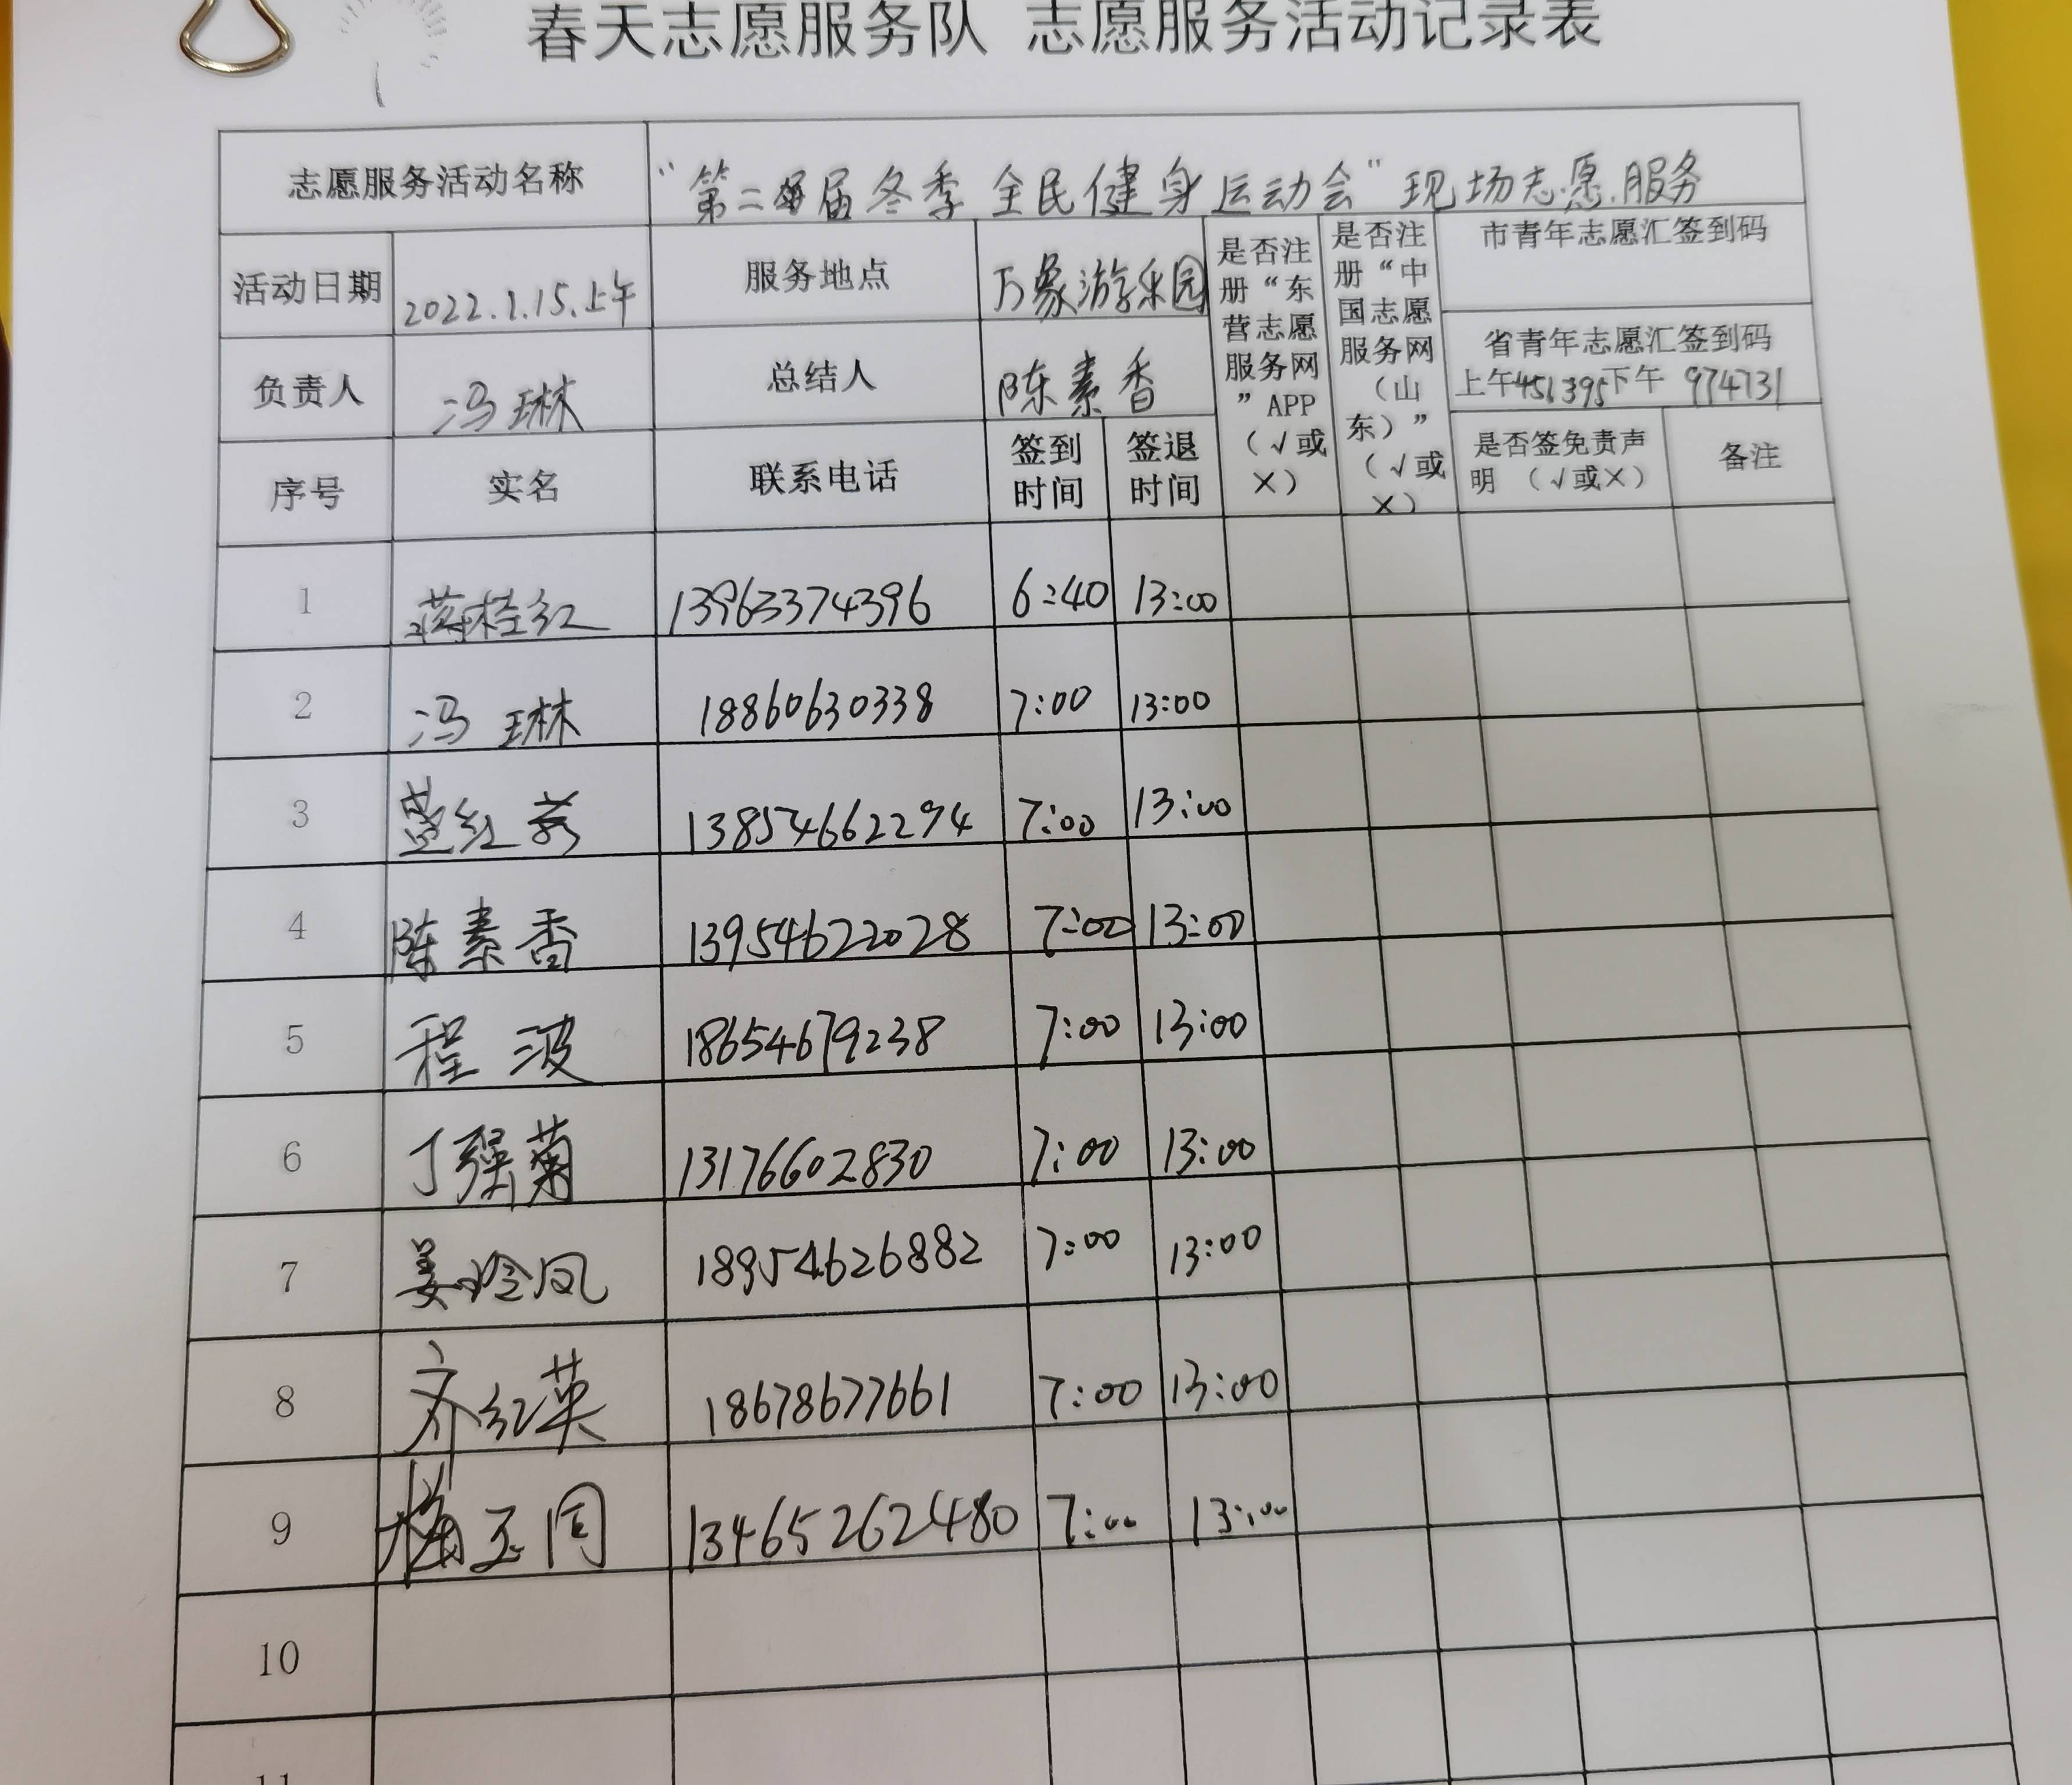 春天志愿服务队 志愿服务活动记录表
志愿服务活动名称 “第二届冬季全民健身运动会”现场志愿服务
活动日期 2022.1.15.上午 服务地点 万象游乐园
是否注册“东营志愿服务网”APP（√或×）
是否注册“中国志愿服务网（山东）”（√或×）
市青年志愿汇签到码
负责人 冯琳 总结人 陈素香
省青年志愿汇签到码
上午451395下午 974731
序号 实名 联系电话 签到时间 签退时间 是否签免责声明（√或×） 备注
1 蒋桂红 13963374396 6:40 13:00
2 冯琳 18860630338 7:00 13:00
3 红 13854662294 7:00 13:00
4 陈素香 13954622028 7:00 13:00
5 程波 18654679238 7:00 13:00
6 丁强菊 13176602830 7:00 13:00
7 姜玲凤 18954626882 7:00 13:00
8 齐红英 18678677661 7:00 13:00
9 梅玉同 13465262480 7:00 13:00
10
11